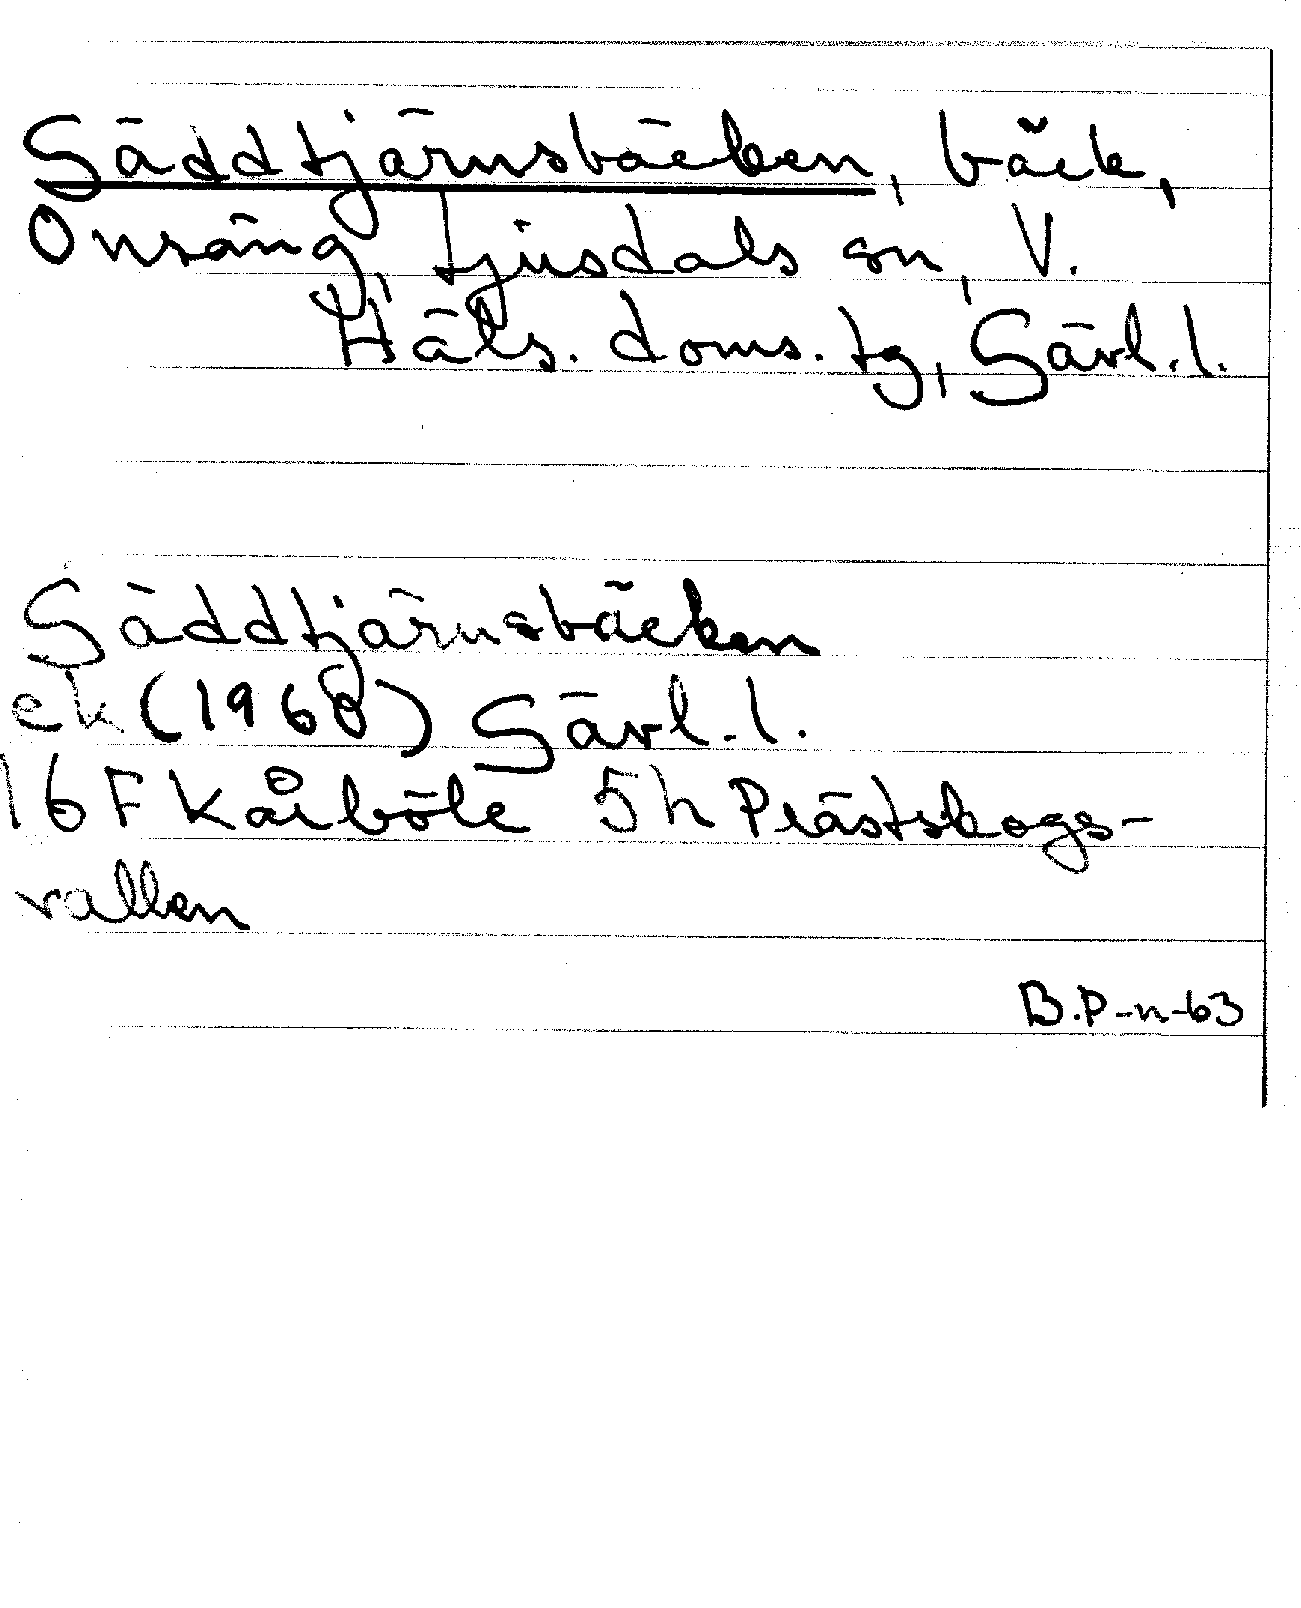 Gäddtjärnsbäcken, bäck,
Onsäng, Ljusdals sn, V.
Häls. doms. tg, Gävl. l.
Gäddtjärnsbäcken
ek (1968) Gävl. l.
16 F Kårböle 5h Prästskogs-
vallen
B.P-n-63